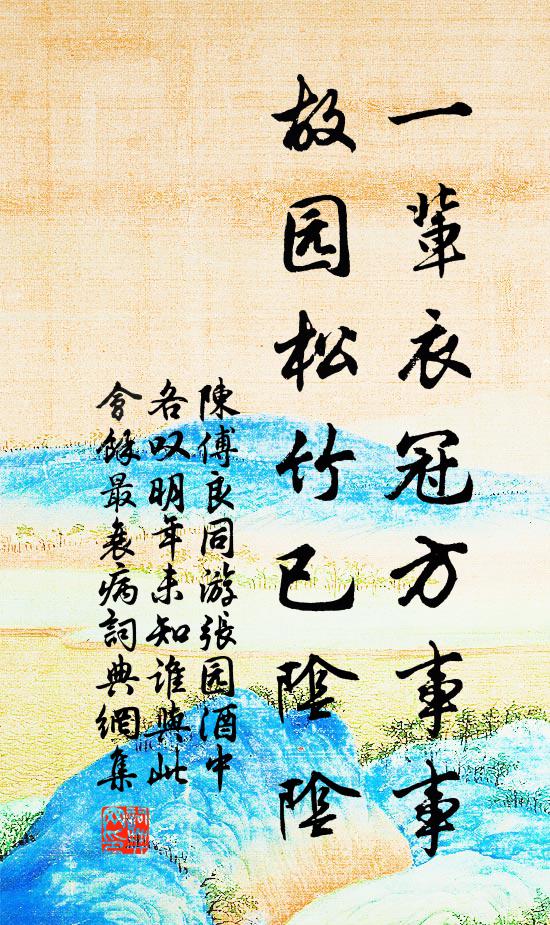 一輩衣冠方事事
故园松竹已陰陰
陳傅良同游張园酒中
各叹明年未知誰與此
會餘最衰病詞典網集